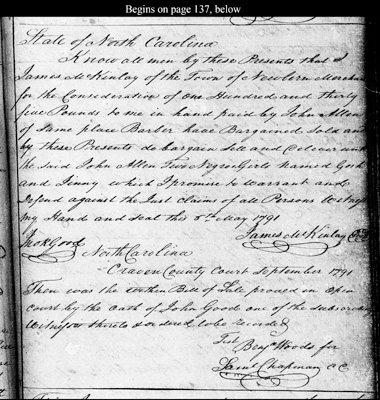 Begins on page 137, below
State of North Carolina
Know all men by these Presents that I
James McKinlay of the Town of Newbern Merchant
for the Consideration of One Hundred and thirty
five Pounds to me in hand paid by John Allen
of Same place Barber have Bargained Sold and
by these Presents do bargain Sell and Deliver unto
the said John Allen Two Negroe Girls named
and Jinny which I promise to warrant and
Defend against the Just claims of all Persons Witness
my Hand and Seal this 8th May 1791
Jno Good James McKinlay
North Carolina
Craven County Court September 1791
Then was the within Bill of Sale proved in Open
Court by the Oath of John Good one of the subscribing
Witness thereto & ordered to be recorded
Test
Benjn Woods for
Saml Chapman CC